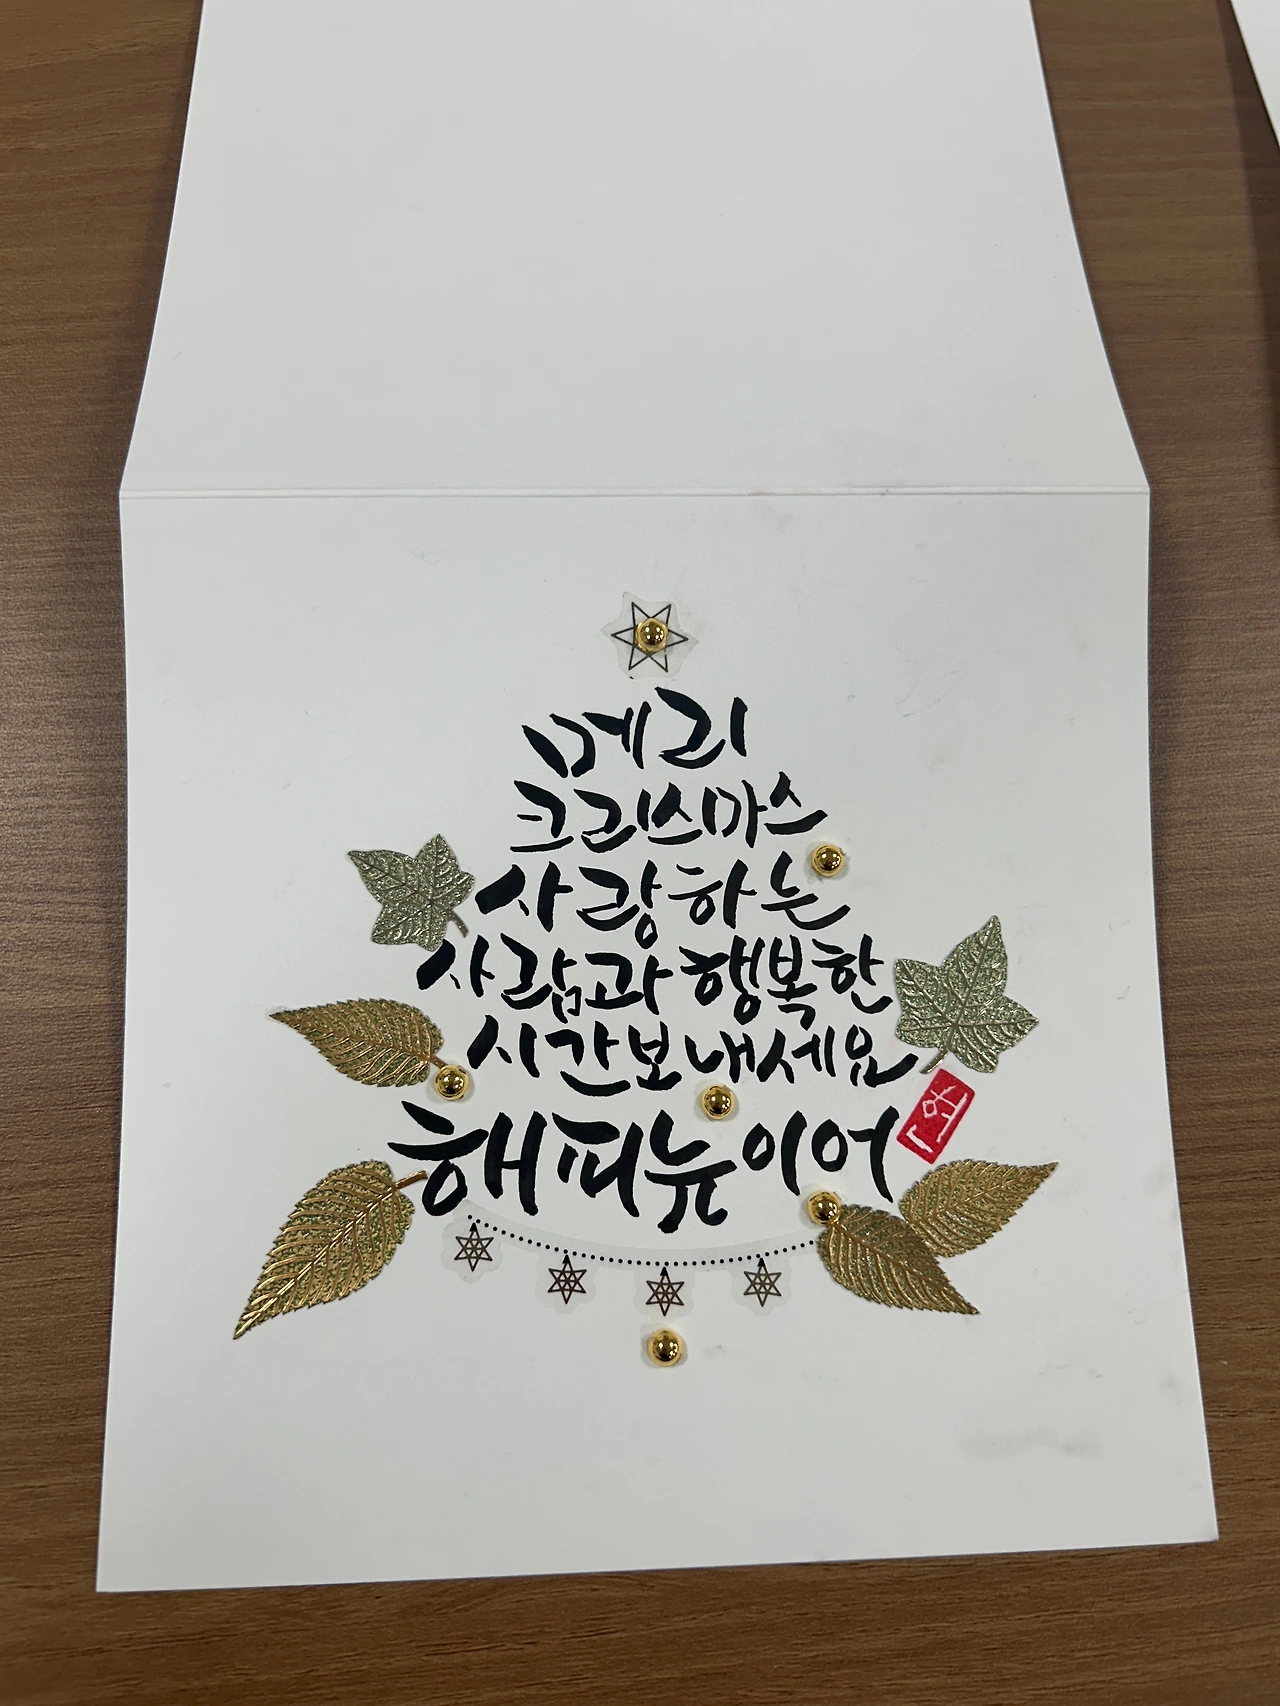 메리
크리스마스
사랑하는
사람과 행복한
시간보내세요
해피뉴이어